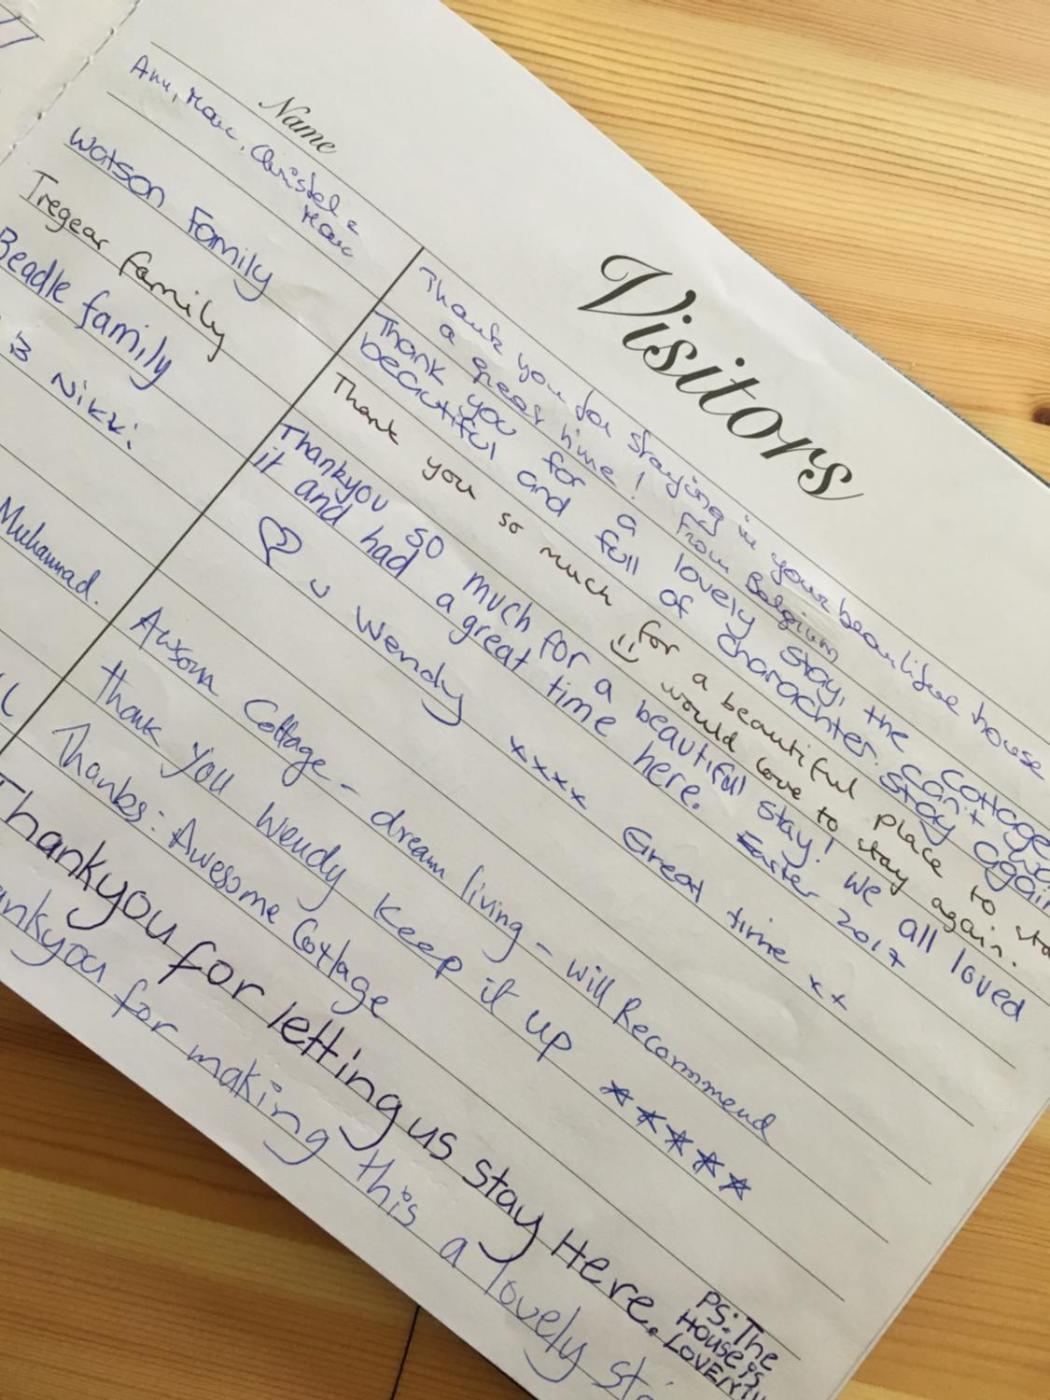 Visitors
Name
Ann, Marc, Christel &
Marc
Thank you for staying in your beautifue house
a great time! From Belgium
Watson Family
Thank you for a lovely stay, the Cottage
beautiful and full of charachter. can't wa
stay again
Tregear family
Thank you so much for a beautiful place to sta
would love to stay again.
Beadle family
Thankyou so much for a beautiful stay! We all loved
it and had a great time here. Easter 2017
Nikki
U Wendy xxxx Great time xx
Muhammad.
Awsom Cottage - dream living - will Recommend
thank you Wendy Keep it up ☆☆☆☆☆
Thanks: Awesome Cottage
Thankyou for letting us stay Here.
PS: The
House is
LOVELY
ankyou for making this a lovely sta